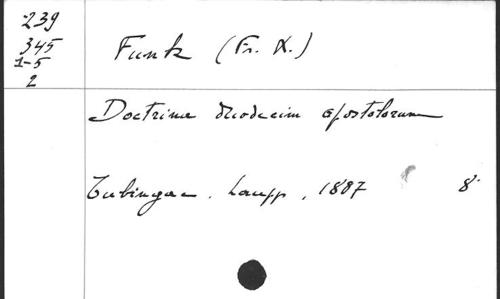 239
345
1-5
2
Funk (Fr. X.)
Doctrina duodecim apostolorum
Tubingae. Laupp, 1887 8°